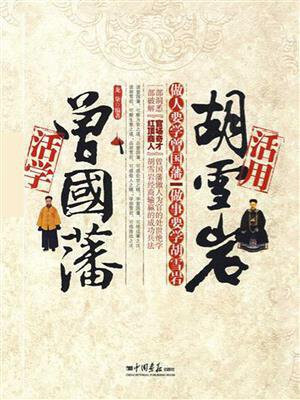 活学
曾國藩
活用
胡雪岩
做人要学曾国藩 做事要学胡雪岩
一部洞悉“官场奇才”曾国藩做人为官的处世绝学
一部破解“红顶商人”胡雪岩经商输赢的成功兵法
编著
中国画报出版社
CHINA PICTORIAL PUBLISHING HOUSE